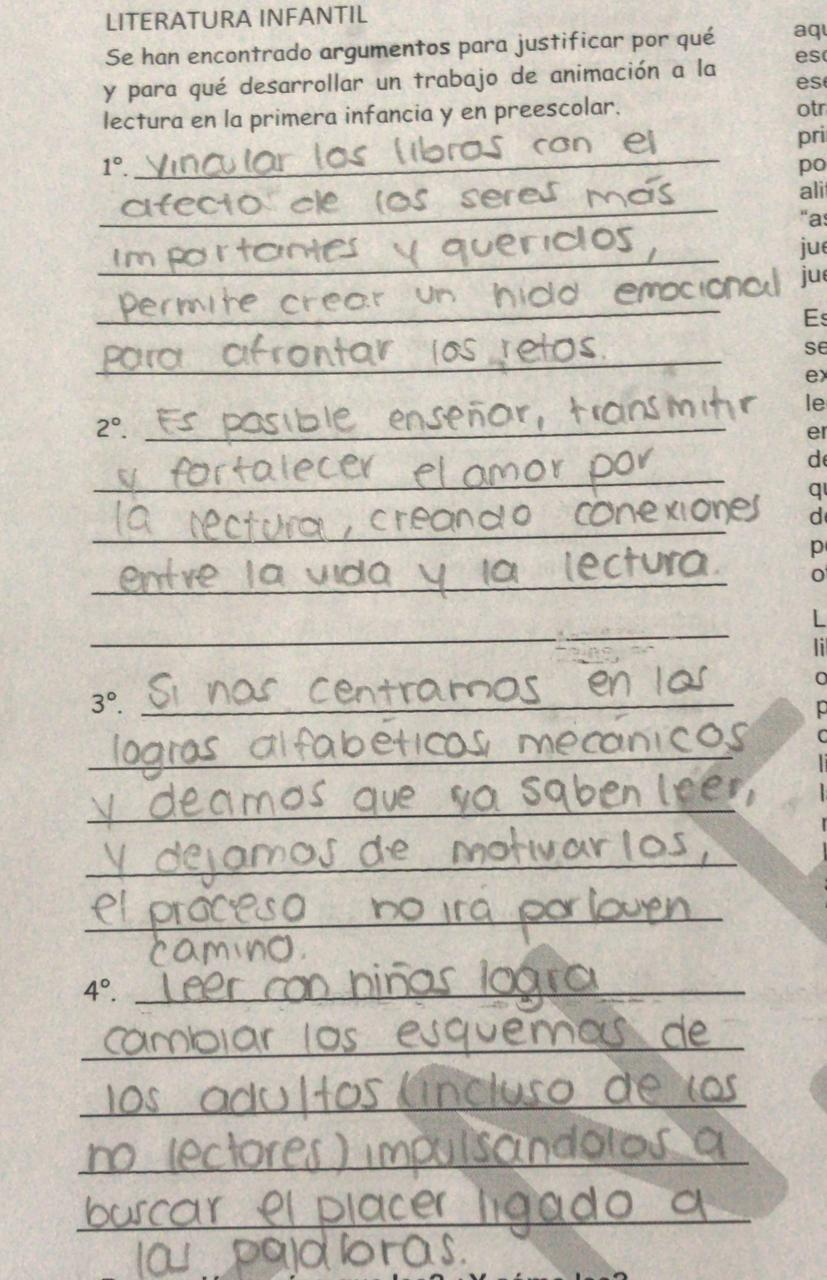 LITERATURA INFANTIL
Se han encontrado argumentos para justificar por qué
y para qué desarrollar un trabajo de animación a la
lectura en la primera infancia y en preescolar.
1º. Vincular los libros con el
afecto de los seres más
importantes y queridos,
permite crear un nido emocional
para afrontar los retos.
2º. Es posible enseñar, transmitir
y fortalecer el amor por
la lectura, creando conexiones
entre la vida y la lectura.
3º. Si nos centramos en los
logros alfabéticos, mecánicos
y deamos que ya saben leer,
y dejamos de motivarlos,
el proceso no irá por buen
camino.
4º. Leer con niños logra
cambiar los esquemas de
los adultos (incluso de los
no lectores) impulsandolos a
buscar el placer ligado a
las palabras.